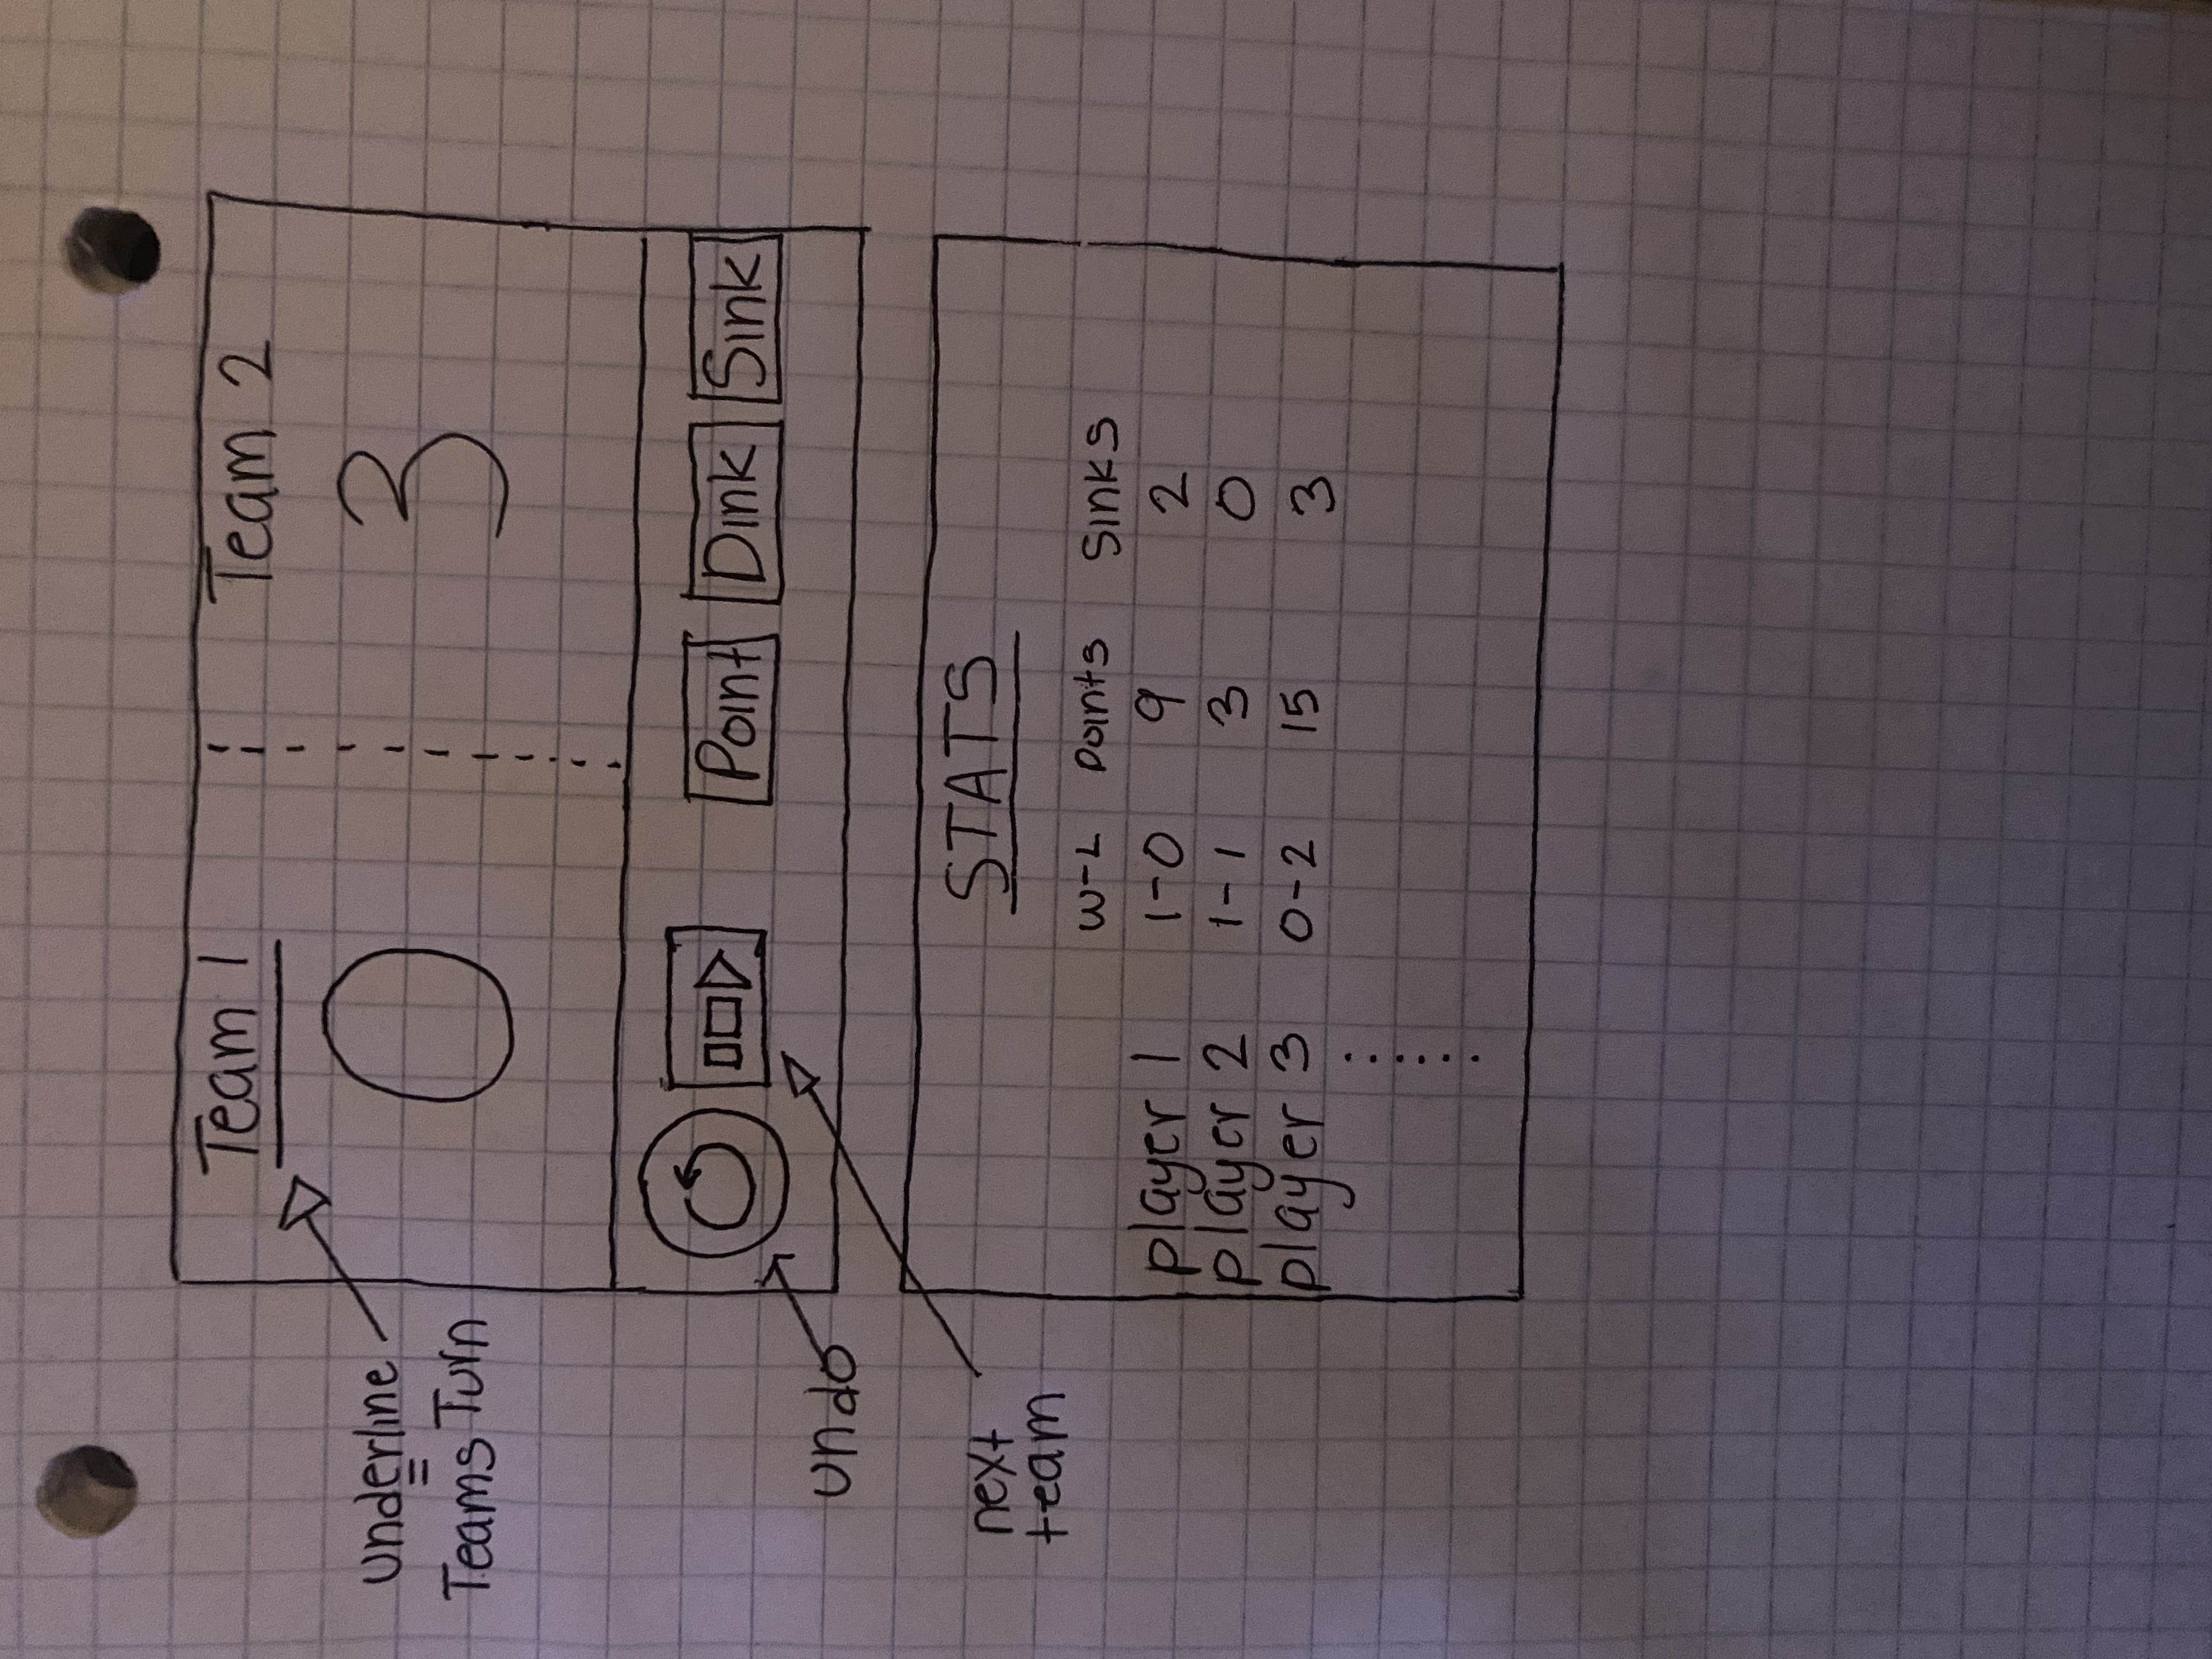 Team 1 Team 2
0 3
underline
=
Teams Turn
Point Dink Sink
undo
next
team
STATS
W-L Points Sinks
player 1 1-0 9 2
player 2 1-1 3 0
player 3 0-2 15 3